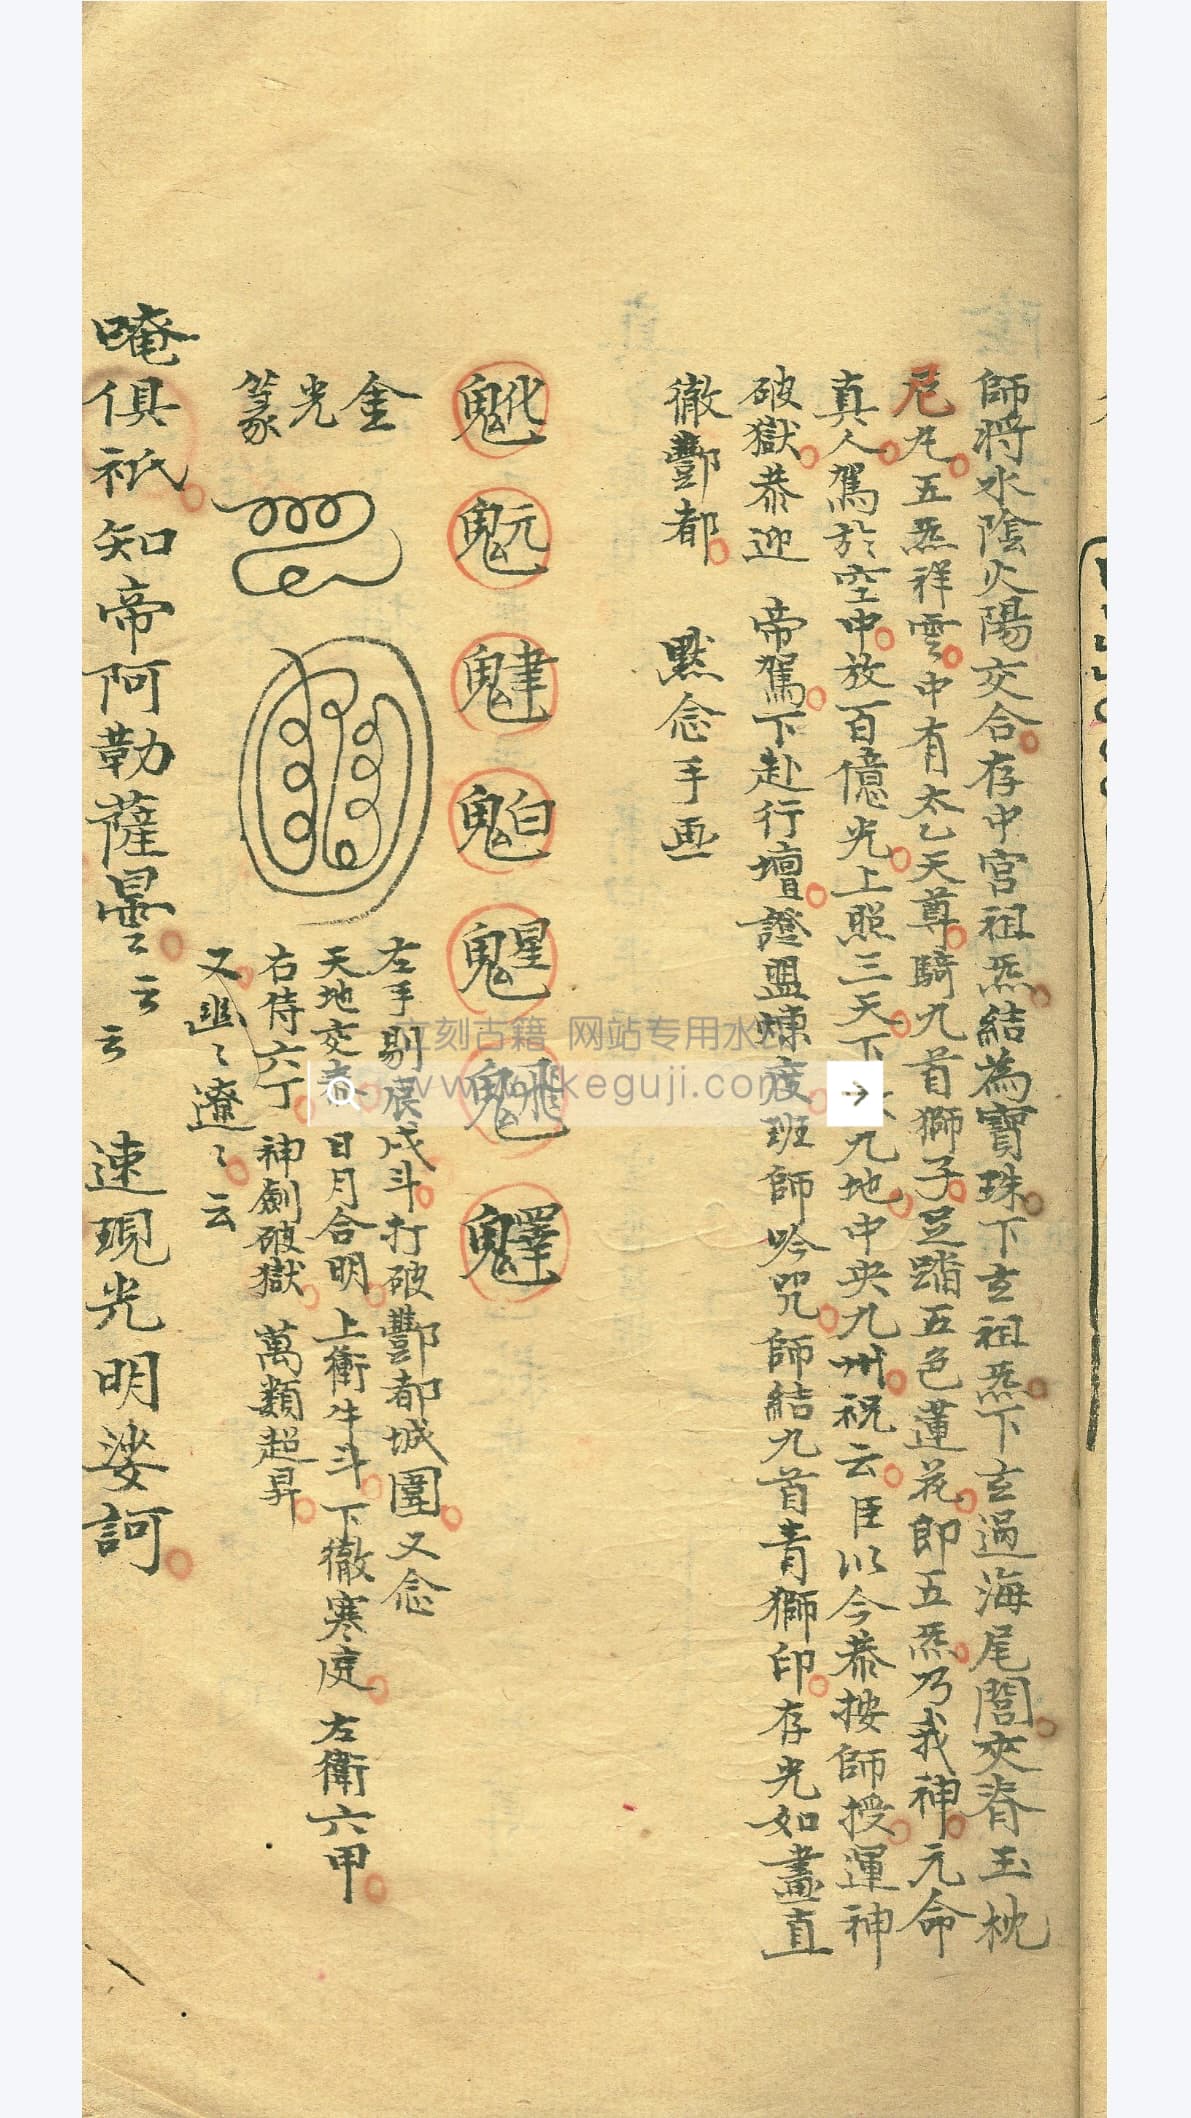 師將水陰火陽交合存中宮祖炁結為寶珠下玄祖炁下玄過海尾閭夾脊玉枕
尼丸五炁祥雲中有太乙天尊騎九首獅子足踏五色蓮花即五炁乃我神元命
真人駕於空中放百億光上照三天下 九地中央九州祝云臣以今恭按師授運神
破獄恭迎 帝駕下赴行壇證盟煉度班師吟咒師結九首青獅印存光如晝直
徹酆都 默念手画
金光篆
左手剔辰戌斗打破酆都城圍又念
天地交泰 日月合明上衝牛斗下徹寒庭左衛六甲
右侍六丁神劍破獄萬類超昇
又幽〻遼〻云
唵俱祇知帝阿勒薩曇〻云云 速現光明娑訶
立刻古籍 网站专用水
www.likeguji.com